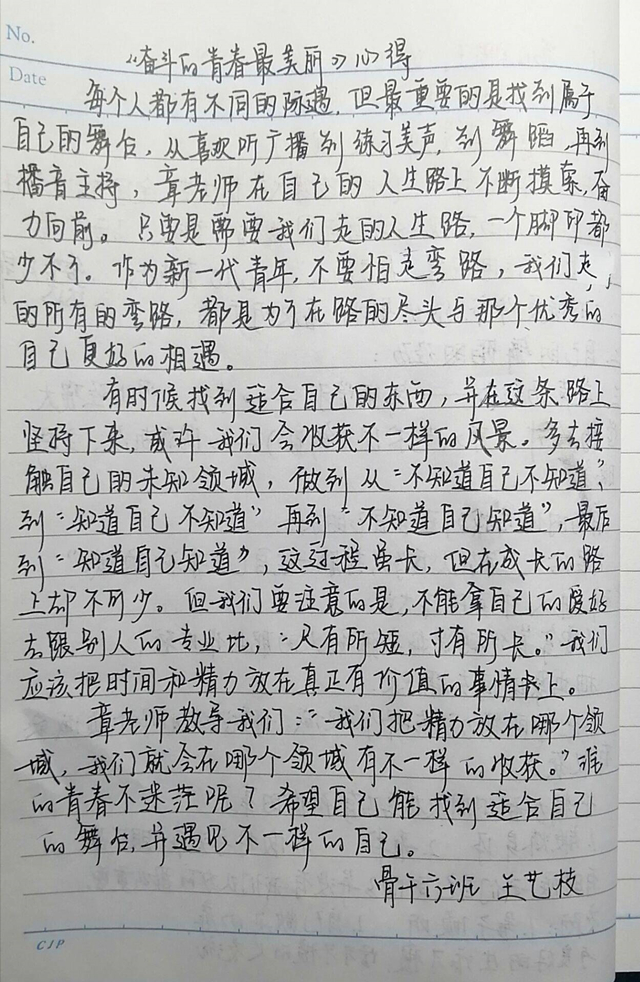 No.
Date
《奋斗的青春最美丽》心得
每个人都有不同的际遇,但最重要的是找到属于
自己的舞台,从喜欢听广播到练习美声,到舞蹈,再到
播音主持,章老师在自己的人生路上不断摸索,奋
力向前。只要是需要我们走的人生路,一个脚印都
少不了。作为新一代青年,不要怕走弯路,我们走
的所有的弯路,都是为了在路的尽头与那个优秀的
自己更好的相遇。
有时候找到适合自己的东西,并在这条路上
坚持下来,或许我们会收获不一样的风景。多去接
触自己的未知领域,做到从“不知道自己不知道”,
到“知道自己不知道”再到“不知道自己知道”,最后
到“知道自己知道”,这过程虽长,但在成长的路
上却不可少。但我们要注意的是,不能拿自己的爱好
去跟别人的专业比,“尺有所短,寸有所长。”我们
应该把时间和精力放在真正有价值的事情上。
章老师教导我们:“我们把精力放在哪个领
域,我们就会在哪个领域有不一样的收获。”谁
的青春不迷茫呢?希望自己能找到适合自己
的舞台,并遇见不一样的自己。
骨干六班 王艺枝
CJP